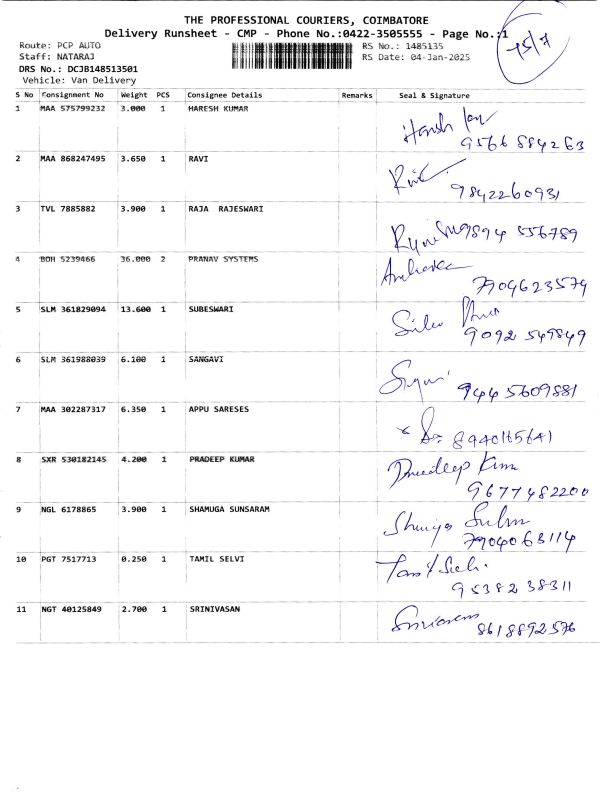 THE PROFESSIONAL COURIERS, COIMBATORE
Delivery Runsheet - CMP - Phone No.:0422-3505555 - Page No.:1
Route: PCP AUTO RS No.: 1485135
Staff: NATARAJ RS Date: 04-Jan-2025
DRS No.: DCJB148513501
Vehicle: Van Delivery
S No Consignment No Weight PCS Consignee Details Remarks Seal & Signature
1 MAA 575799232 3.000 1 HARESH KUMAR
Harish
9566884263
2 MAA 868247495 3.650 1 RAVI
9842260931
3 TVL 7885882 3.900 1 RAJA RAJESWARI
9894 556789
4 BOH 5239466 36.000 2 PRANAV SYSTEMS
7904623579
5 SLM 361829094 13.600 1 SUBESWARI
9092 549849
6 SLM 361988039 6.100 1 SANGAVI
9445609881
7 MAA 302287317 6.350 1 APPU SARESES
8940165641
8 SXR 530182145 4.200 1 PRADEEP KUMAR
9677482200
9 NGL 6178865 3.900 1 SHAMUGA SUNSARAM
7904063114
10 PGT 7517713 0.250 1 TAMIL SELVI
9538238311
11 NGT 40125849 2.700 1 SRINIVASAN
8618892576